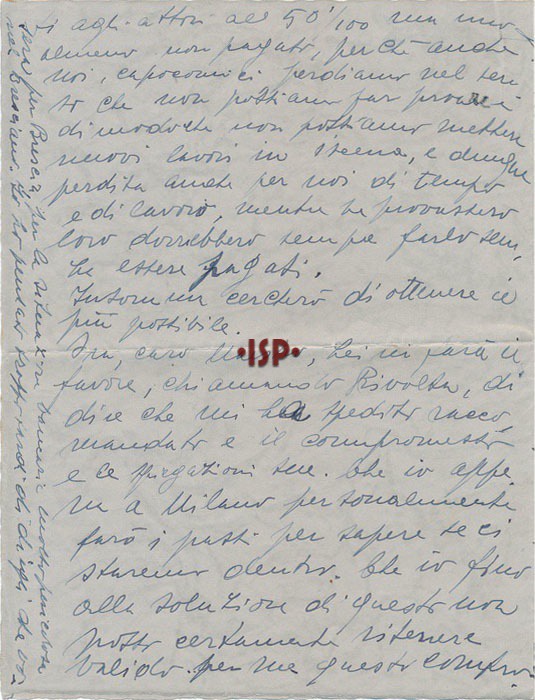 si agli attori al 50%
almeno non pagato, perchè anche
noi, capocomici perdiamo nel sen-
so che non possiamo far prove e
di modochè non possiamo mettere
nuovi lavori in scena, e dunque
perdita anche per noi di tempo
e di lavoro, mentre se provassero
loro dovrebbero sempre farlo sen-
za essere pagati.
Insomma cercherò di ottenere il
più possibile.
Ora, caro Lei mi farà il
favore, chiamando Rivolta, di
dire che mi ha spedito racco-
mandato e il compromesso
e le spiegazioni sue. Che io appe-
na a Milano personalmente
farò i passi per sapere se ci
staremo dentro. Che io fino
alla soluzione di questo non
posso certamente ritenere
valido per me questo compro-
sera per Brescia
nel bresciano. Io ho pensato
ISP